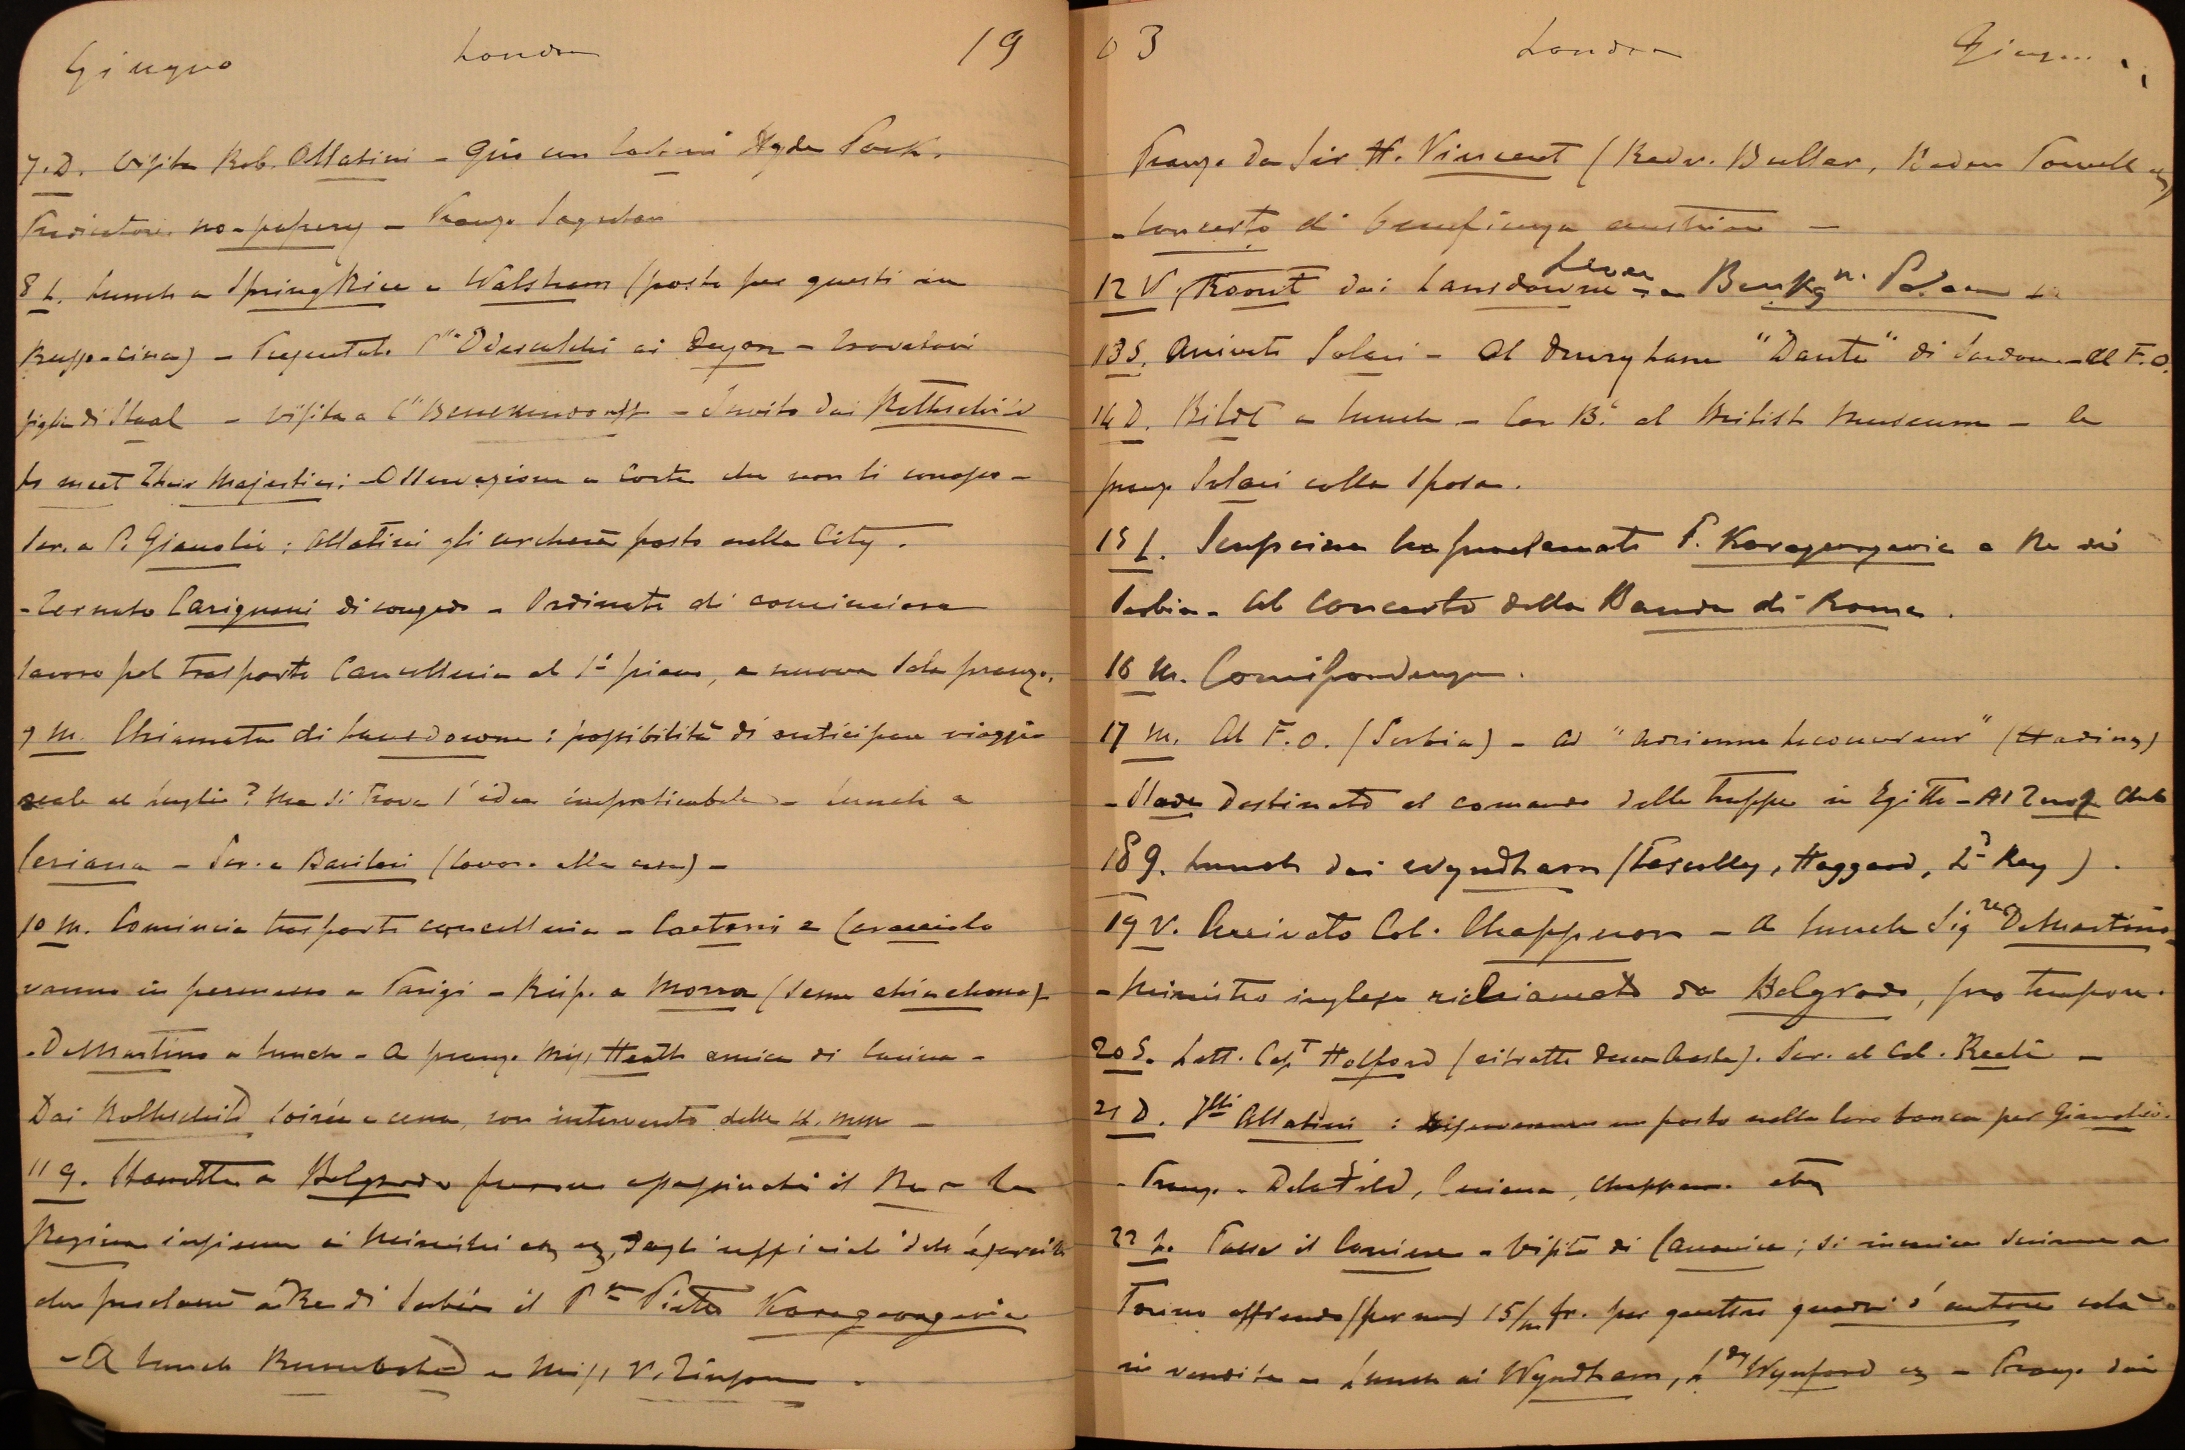 Giugno Londra 19
7. D. Visita Rob. Allatini - Giro con Hyde Park.
Predicatori no-popery - Pranzo
8 L. Lunch a Spring Rice e Walsham (posto per questi in
Russo-cina) - Presentate Odescalchi ai - trovatavi
figlia di Staal - Visita a Cte Benckendorff - Invito dai Rothschild
to meet Their Majesties: Osservazione a Corte che non li conosco -
Scr. a P. Gianolio: Allatini gli cercherà posto nella City.
- Tornato Carignani di congedo - Ordinato di cominciare
lavoro pel trasporto Cancelleria al 1° piano, e nuova Sala pranzo.
9 M. Chiamata di Lansdowne: possibilità di anticipare viaggio
reale al luglio? Ma si trova l'idea impraticabile - Lunch a
Ceriana - Scr. a Basilari (lavori alla casa) -
10 M. Comincia trasporto cancelleria - Caetani e Caracciolo
vanno in permesso a Parigi - Risp. a Morra (seme chinchona) -
- DeMartino a lunch - A pranzo Miss Heath amica di -
Dai Rothschild soirée e cena, con intervento delle LL. MM. -
11 G. Stanotte a Belgrado furono assassinati il Re e la
Regina insieme ai Ministri ecc ecc, dagli ufficiali dell'esercito
che proclamò a Re di Serbia il Pe Pietro Karageorgevic
- A lunch Rumbold e Miss V.
03 Londra Giugno
Pranzo da Sir H. Vincent (Redv. Buller, Baden Powell ecc)
- Concerto di beneficenza austriaco -
12 V. dai Lansdowne - Levee a Buckgm. Palace -
13 S. Arrivati Solari - Al Drury Lane "Dante" di Sardou - Al F.O.
14 D. Bildt a lunch - Con B. al British Museum - A
pranzo Solari colla sposa.
15 L. Scupscina ha proclamato P. Karageorgevic a Re di
Serbia - Al Concerto della Banda di Roma.
16 M. Corrispondenza.
17 M. Al F.O. (Serbia) - Ad "Adrienne Lecouvreur" (Hading)
- Slade destinato al comando delle truppe in Egitto - Al Club
18 G. Lunch dai Wyndham (Tascelly, Haggard, Ld Reay).
19 V. Arrivato Col. Chapperon - A lunch Sigre DeMartino
- Ministro inglese richiamato da Belgrado, pro tempore.
20 S. Lett. Capt Holford (ritratti). Scr. al Col. -
21 D. Allatini: riserveranno un posto nella loro banca per Gianolio.
- Pranzo a Delafield, Ceriana, Chapperon ecc
22 L. Passa il Corriere - Visita di Canonica; si incarica scrivere a
Torino offrendo (per me) 15/m fr. per quattro quadri d'autore colà
in vendita - Lunch ai Wyndham, Ldy Wynford ecc - Pranzo dai